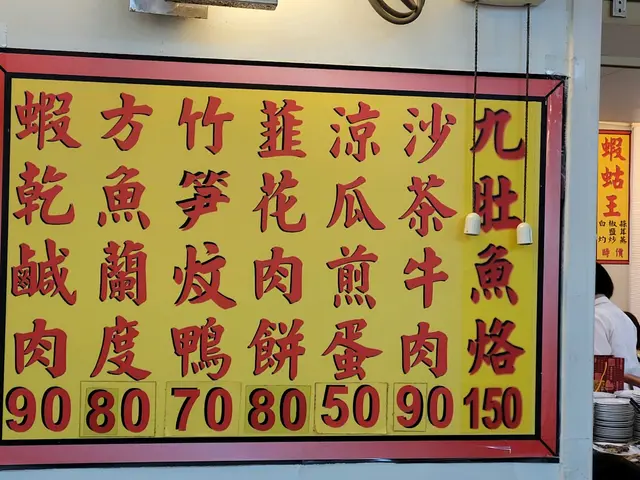 九肚魚烙
150
沙茶牛肉
90
涼瓜煎蛋
50
韮花肉餅
80
竹笋炆鴨
70
方魚蘭度
80
蝦乾鹹肉
90
蝦蛄王
蒜茸蒸
椒鹽炒
白灼
時價